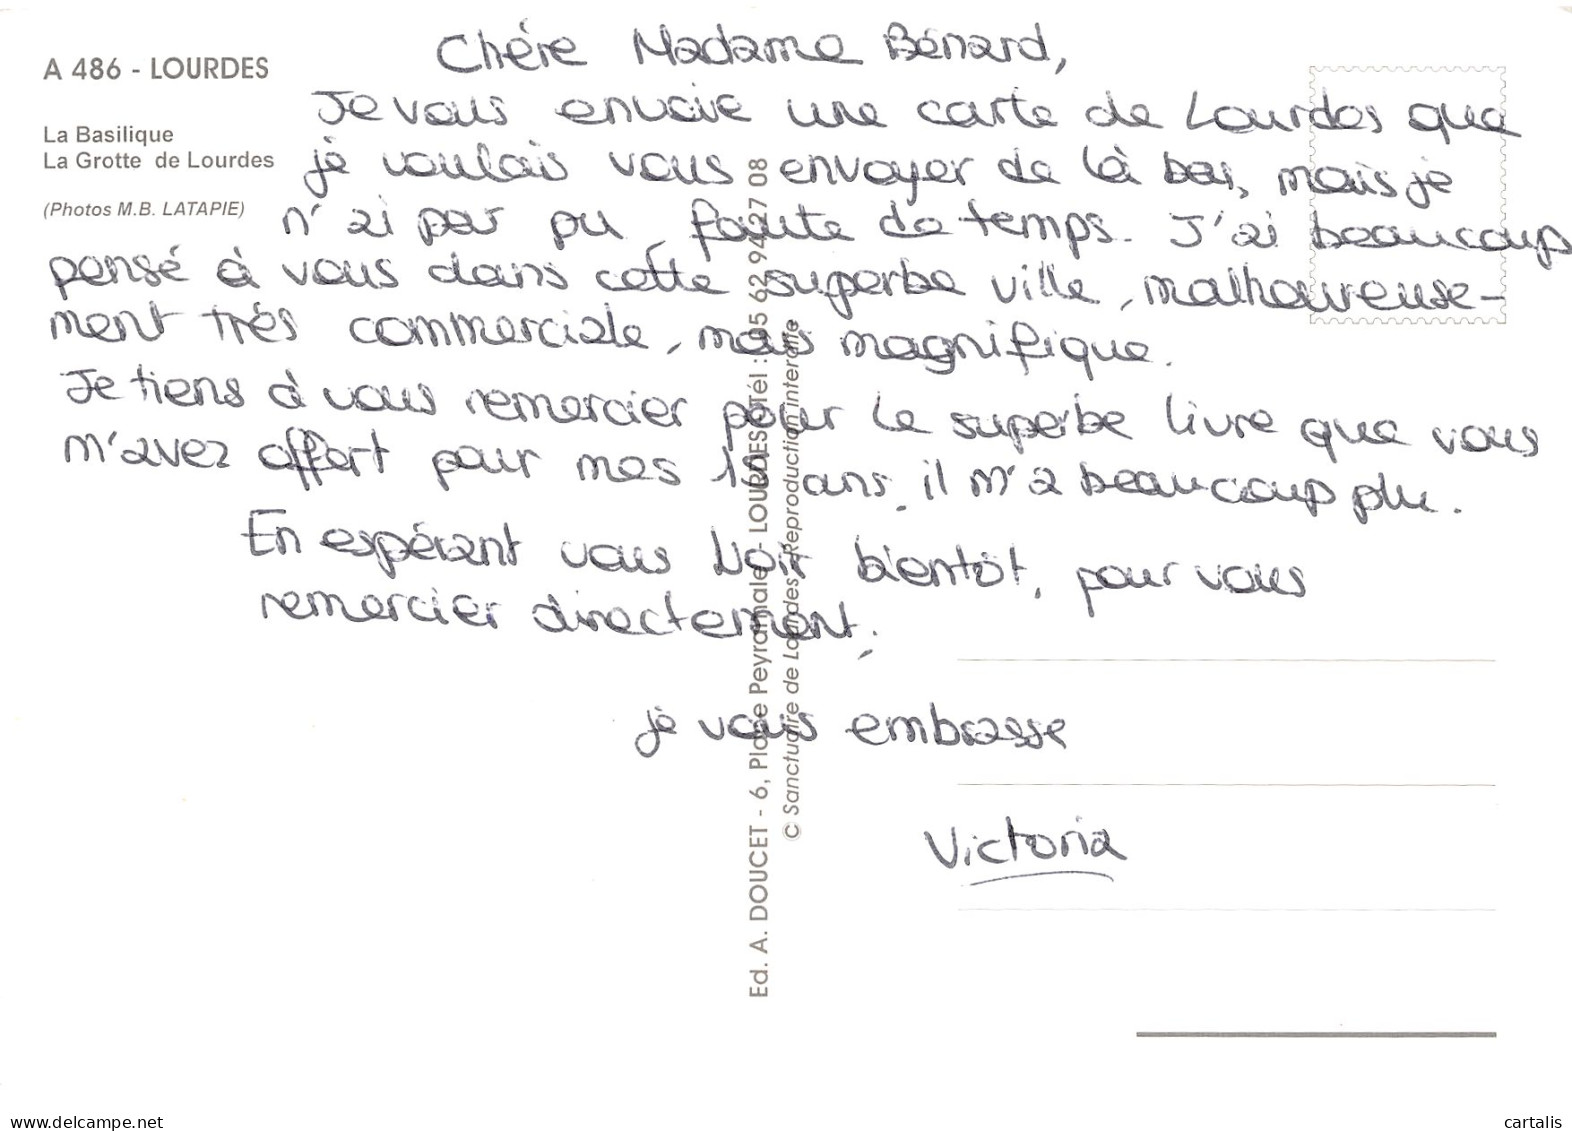 A 486 - LOURDES
La Basilique
La Grotte de Lourdes
(Photos M.B. LATAPIE)
Chére Madame Bénard,
Je vous envoie une carte de Lourdes que
je voulais vous envoyer de là bas, mais je
n'ai pas pu, faute de temps. J'ai beaucoup
pensé à vous dans cette superbe ville, malheureuse-
ment trés commerciale, mais magnifique.
Je tiens à vous remercier pour le superbe livre que vous
m'avez offert pour mes ans, il m'a beaucoup plu.
En espérant vous voir bientôt, pour vous
remercier directement,
je vous embrasse
Victoria
Ed. A. DOUCET - 6, Place Peyramale - LOURDES - Tél : 05 62 94 27 08
© Sanctuaire de Lourdes - Reproduction interdite
cartalis